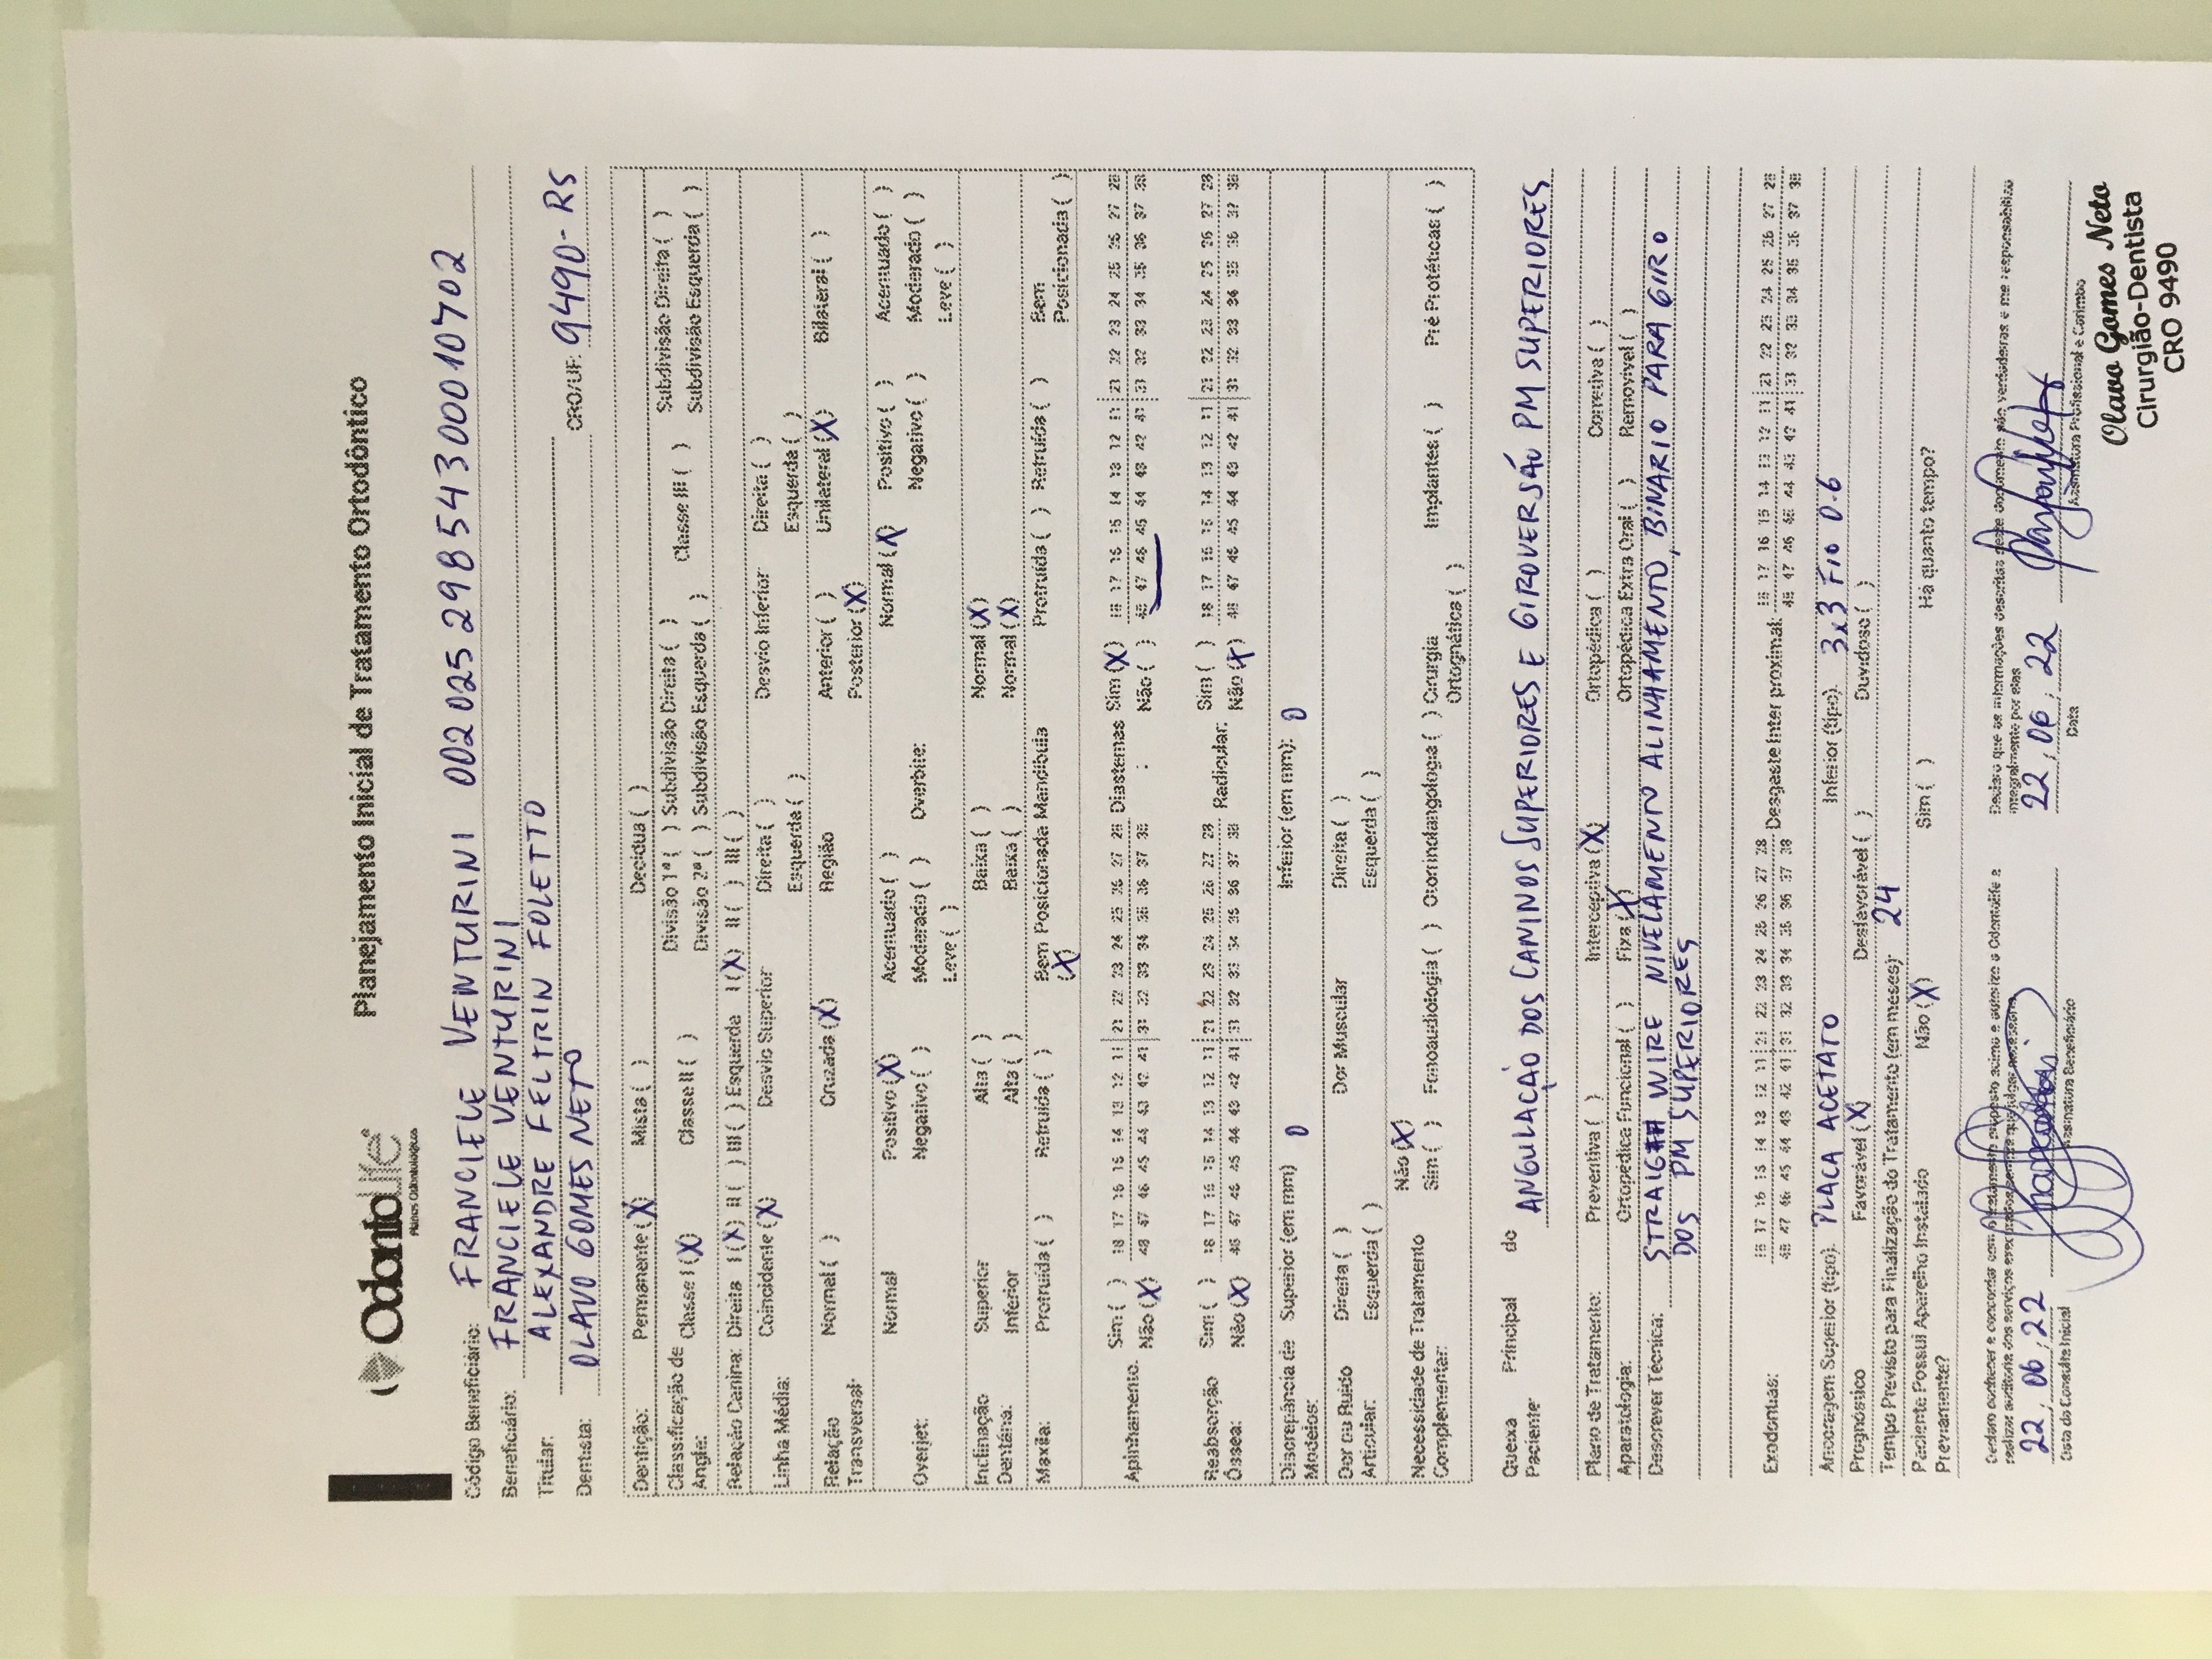 OdontoLife®
Planos Odontológicos
Planejamento Inicial de Tratamento Ortodôntico
Código Beneficiário: FRANCIELE VENTURINI 00202529854300010702
Beneficiário: FRANCIELE VENTURINI
Titular: ALEXANDRE FELTRIN FOLETTO
Dentista: OLAVO GOMES NETO CRO/UF: 9490-RS
Dentição: Permanente (X) Mista ( ) Decídua ( )
Classificação de Angle: Classe I (X) Classe II ( ) Divisão 1ª ( ) Subdivisão Direita ( ) Classe III ( ) Subdivisão Direita ( )
Divisão 2ª ( ) Subdivisão Esquerda ( ) Subdivisão Esquerda ( )
Relação Canina: Direita I (X) II ( ) III ( ) Esquerda I (X) II ( ) III ( )
Linha Média: Coincidente (X) Desvio Superior Direita ( ) Desvio Inferior Direita ( )
Esquerda ( ) Esquerda ( )
Relação Transversal: Normal ( ) Cruzada (X) Região Anterior ( ) Unilateral (X) Bilateral ( )
Posterior (X)
Overjet: Normal Positivo (X) Acentuado ( ) Overbite: Normal (X) Positivo ( ) Acentuado ( )
Negativo ( ) Moderado ( ) Negativo ( ) Moderado ( )
Leve ( ) Leve ( )
Inclinação Superior Alta ( ) Baixa ( ) Normal (X)
Dentária: Inferior Alta ( ) Baixa ( ) Normal (X)
Maxila: Protruída ( ) Retruída ( ) Bem Posicionada (X) Mandíbula Protruída ( ) Retruída ( ) Bem Posicionada ( )
Apinhamento: Sim ( ) 18 17 16 15 14 13 12 11 21 22 23 24 25 26 27 28 Diastemas Sim (X) 18 17 16 15 14 13 12 11 21 22 23 24 25 26 27 28
Não (X) 48 47 46 45 44 43 42 41 31 32 33 34 35 36 37 38 : Não ( ) 48 47 46 45 44 43 42 41 31 32 33 34 35 36 37 38
Reabsorção Sim ( ) 18 17 16 15 14 13 12 11 21 22 23 24 25 26 27 28 Radicular: Sim ( ) 18 17 16 15 14 13 12 11 21 22 23 24 25 26 27 28
Óssea: Não (X) 48 47 46 45 44 43 42 41 31 32 33 34 35 36 37 38 Não (X) 48 47 46 45 44 43 42 41 31 32 33 34 35 36 37 38
Discrepância de Modelos: Superior (em mm) 0 Inferior (em mm): 0
Dor ou Ruído Direita ( ) Dor Muscular Direita ( )
Articular: Esquerda ( ) Esquerda ( )
Necessidade de Tratamento Não (X)
Complementar: Sim ( ) Fonoaudiologia ( ) Otorrinolaringologia ( ) Cirurgia Ortognática ( ) Implantes ( ) Pré Protéticas ( )
Queixa Principal do Paciente ANGULAÇÃO DOS CANINOS SUPERIORES E GIROVERSÃO PM SUPERIORES
Plano de Tratamento: Preventiva ( ) Interceptiva (X) Ortopédica ( ) Corretiva ( )
Aparatologia: Ortopédica Funcional ( ) Fixa (X) Ortopédica Extra Oral ( ) Removível ( )
Descrever Técnica: STRAIGHT WIRE NIVELAMENTO ALINHAMENTO, BINARIO PARA GIRO
DOS PM SUPERIORES
Exodontias: 18 17 16 15 14 13 12 11 21 22 23 24 25 26 27 28 Desgaste Inter proximal: 18 17 16 15 14 13 12 11 21 22 23 24 25 26 27 28
48 47 46 45 44 43 42 41 31 32 33 34 35 36 37 38 48 47 46 45 44 43 42 41 31 32 33 34 35 36 37 38
Ancoragem Superior (tipo). PLACA ACETATO Inferior (tipo). 3x3 FIO 0.6
Prognóstico Favorável (X) Desfavorável ( ) Duvidoso ( )
Tempo Previsto para Finalização do Tratamento (em meses): 24
Paciente Possui Aparelho Instalado Previamente? Não (X) Sim ( ) Há quanto tempo?
Declaro conhecer e concordar com o tratamento proposto acima e autorizo a Odontolife a
realizar auditoria dos serviços executados sempre que julgar necessário
Declaro que as informações descritas neste documento são verdadeiras e me responsabilizo
integralmente por elas
22, 06, 22 22, 06, 22
Data da Consulta Inicial Assinatura Beneficiário Data Assinatura Profissional e Carimbo
Olavo Gomes Neto
Cirurgião-Dentista
CRO 9490